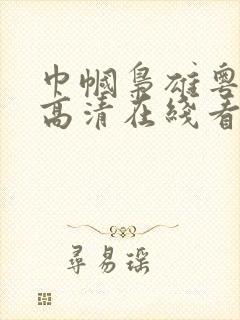 巾帼枭雄粤
高清在线看
寻易瑶